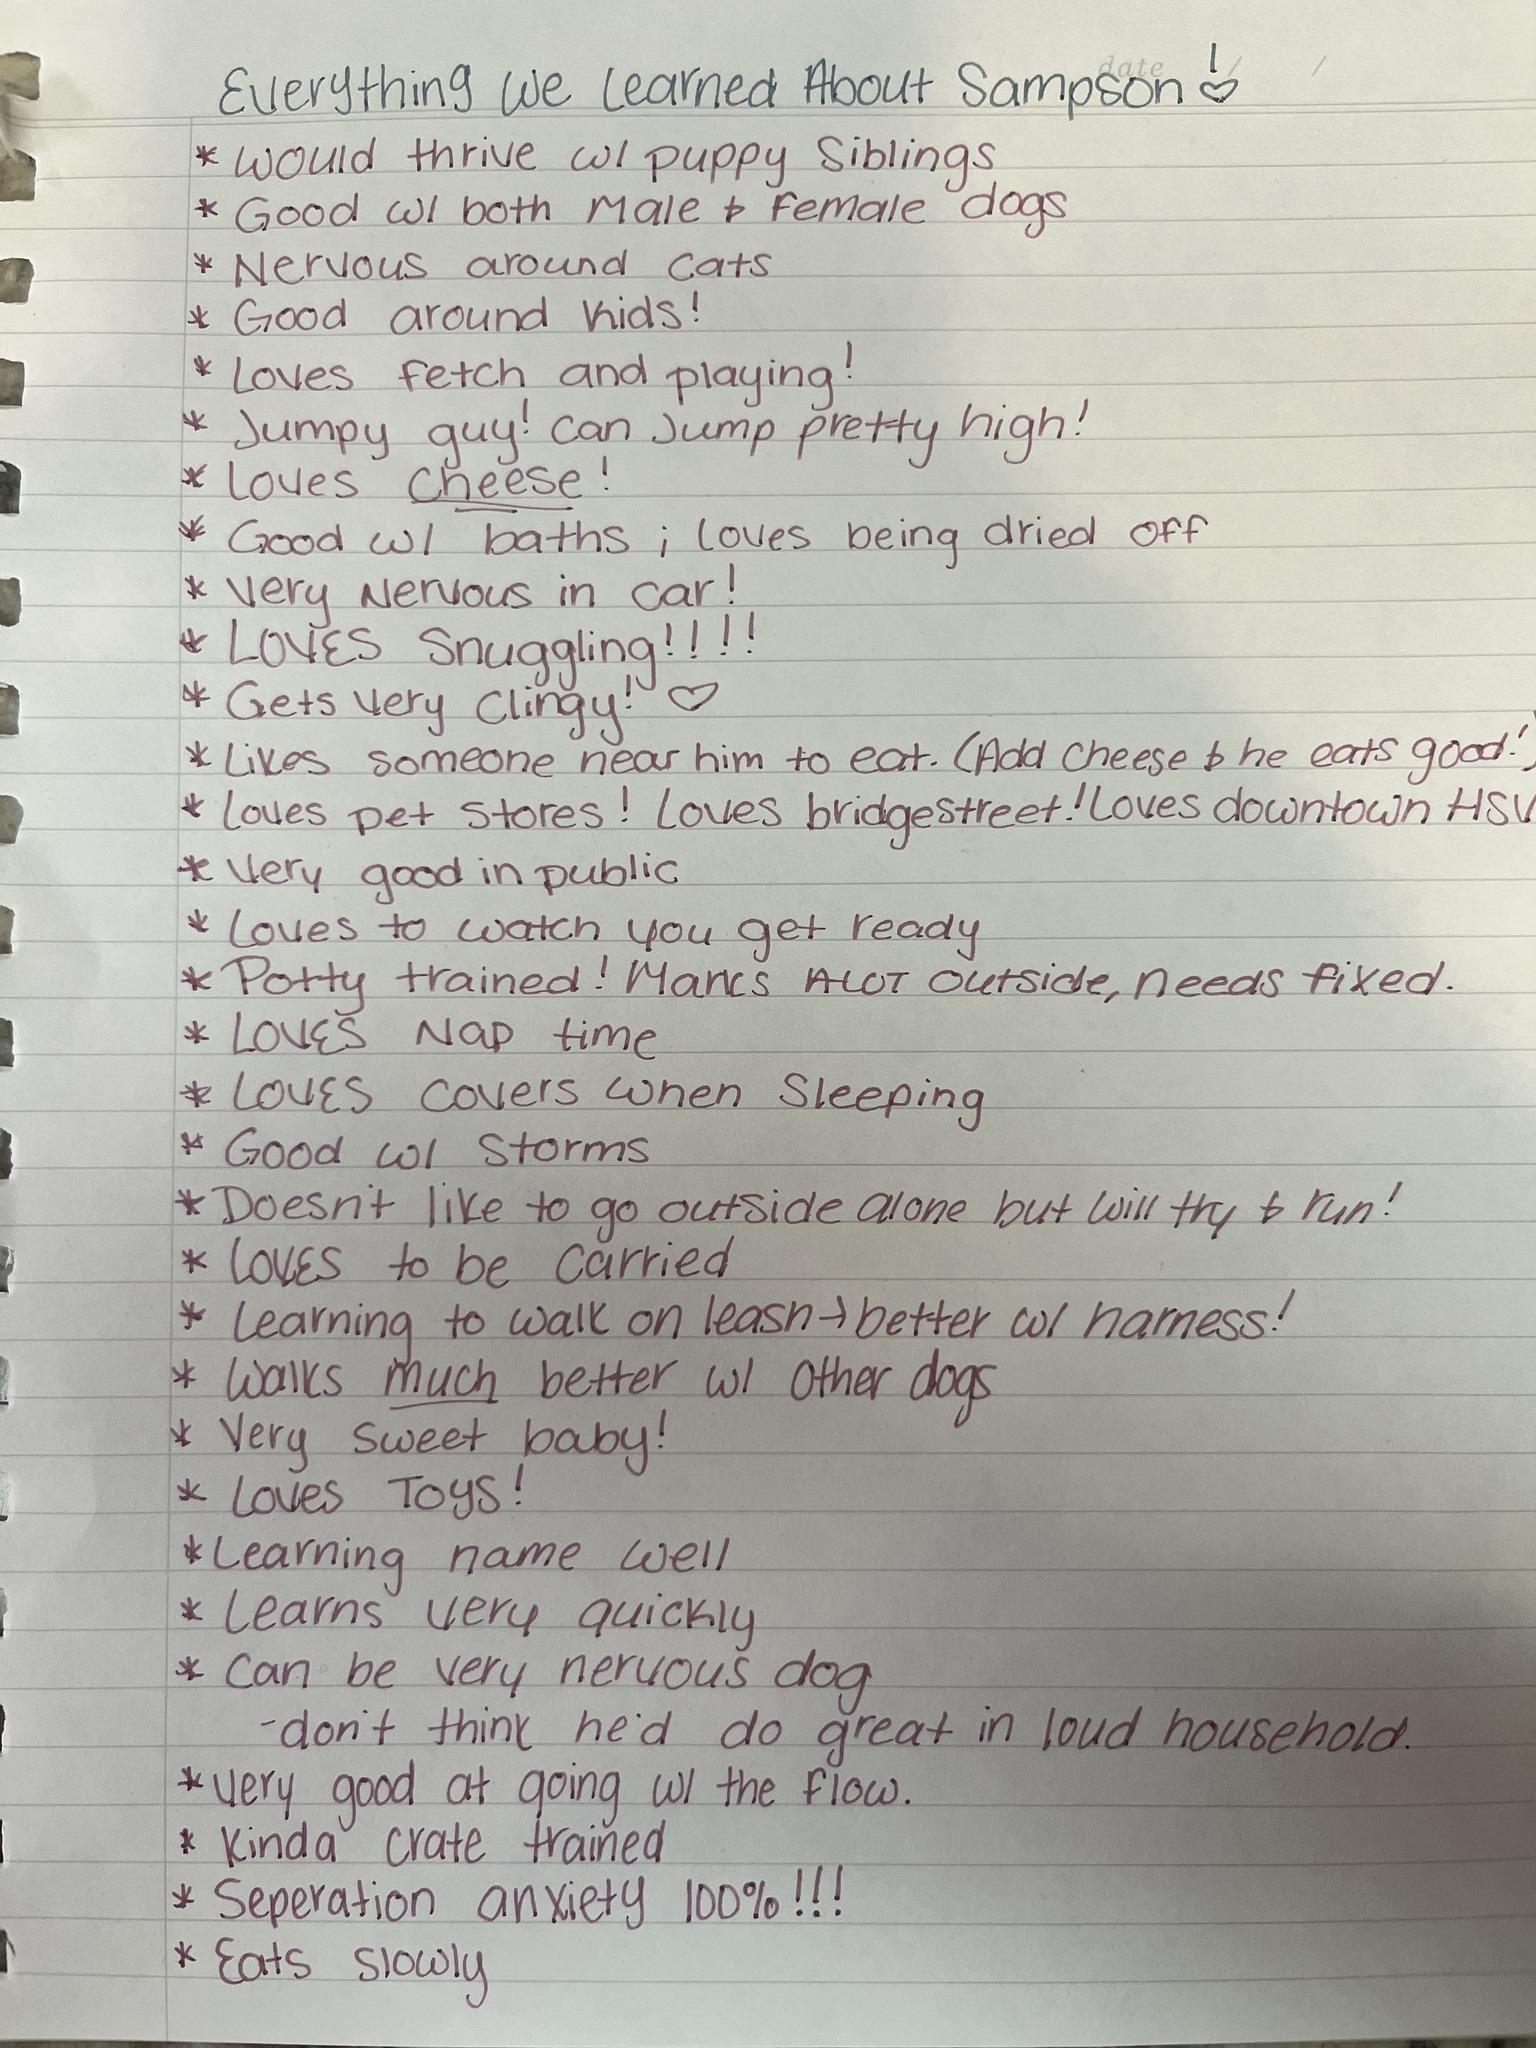 date / /
Everything We Learned About Sampson!
* Would thrive w/ puppy Siblings
* Good w/ both Male & Female dogs
* Nervous around cats
* Good around kids!
* Loves fetch and playing!
* Jumpy guy! Can Jump pretty high!
* Loves cheese!
* Good w/ baths ; loves being dried off
* Very Nervous in car!
* LOVES Snuggling!!!!
* Gets very clingy! ♡
* Likes someone near him to eat. (Add cheese & he eats good!)
* Loves pet stores! Loves bridgestreet! Loves downtown HSV
* Very good in public
* Loves to watch you get ready
* Potty trained! Marks ALOT outside, needs fixed.
* LOVES Nap time
* LOVES covers when Sleeping
* Good w/ Storms
* Doesn't like to go outside alone but will try & run!
* LOVES to be Carried
* Learning to walk on leash→better w/ harness!
* Walks much better w/ other dogs
* Very sweet baby!
* Loves Toys!
* Learning name well
* Learns very quickly
* Can be very nervous dog
-don't think he'd do great in loud household.
* Very good at going w/ the flow.
* Kinda crate trained
* Seperation anxiety 100%!!!
* Eats slowly